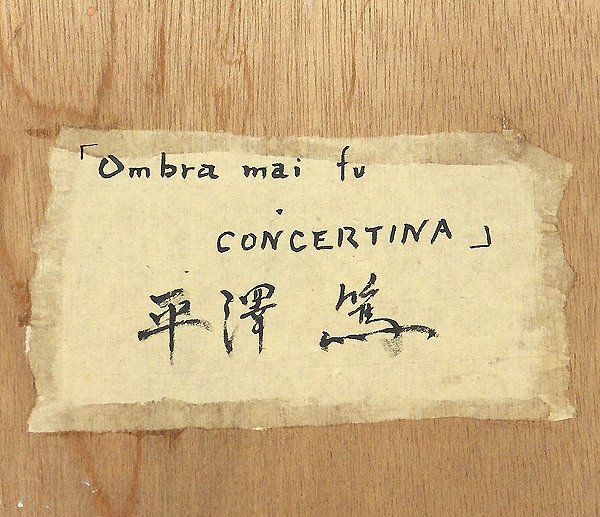 「Ombra mai fu
・CONCERTINA」
平澤 篤